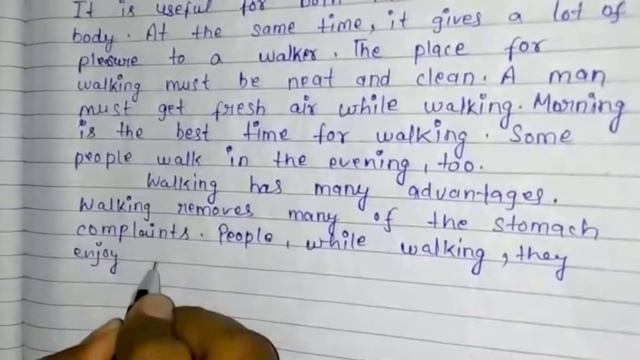 It is useful for both
body. At the same time, it gives a lot of
pleasure to a walker. The place for
walking must be neat and clean. A man
must get fresh air while walking. Morning
is the best time for walking. Some
people walk in the evening, too.
Walking has many advantages.
Walking removes many of the stomach
complaints. People, while walking, they
enjoy